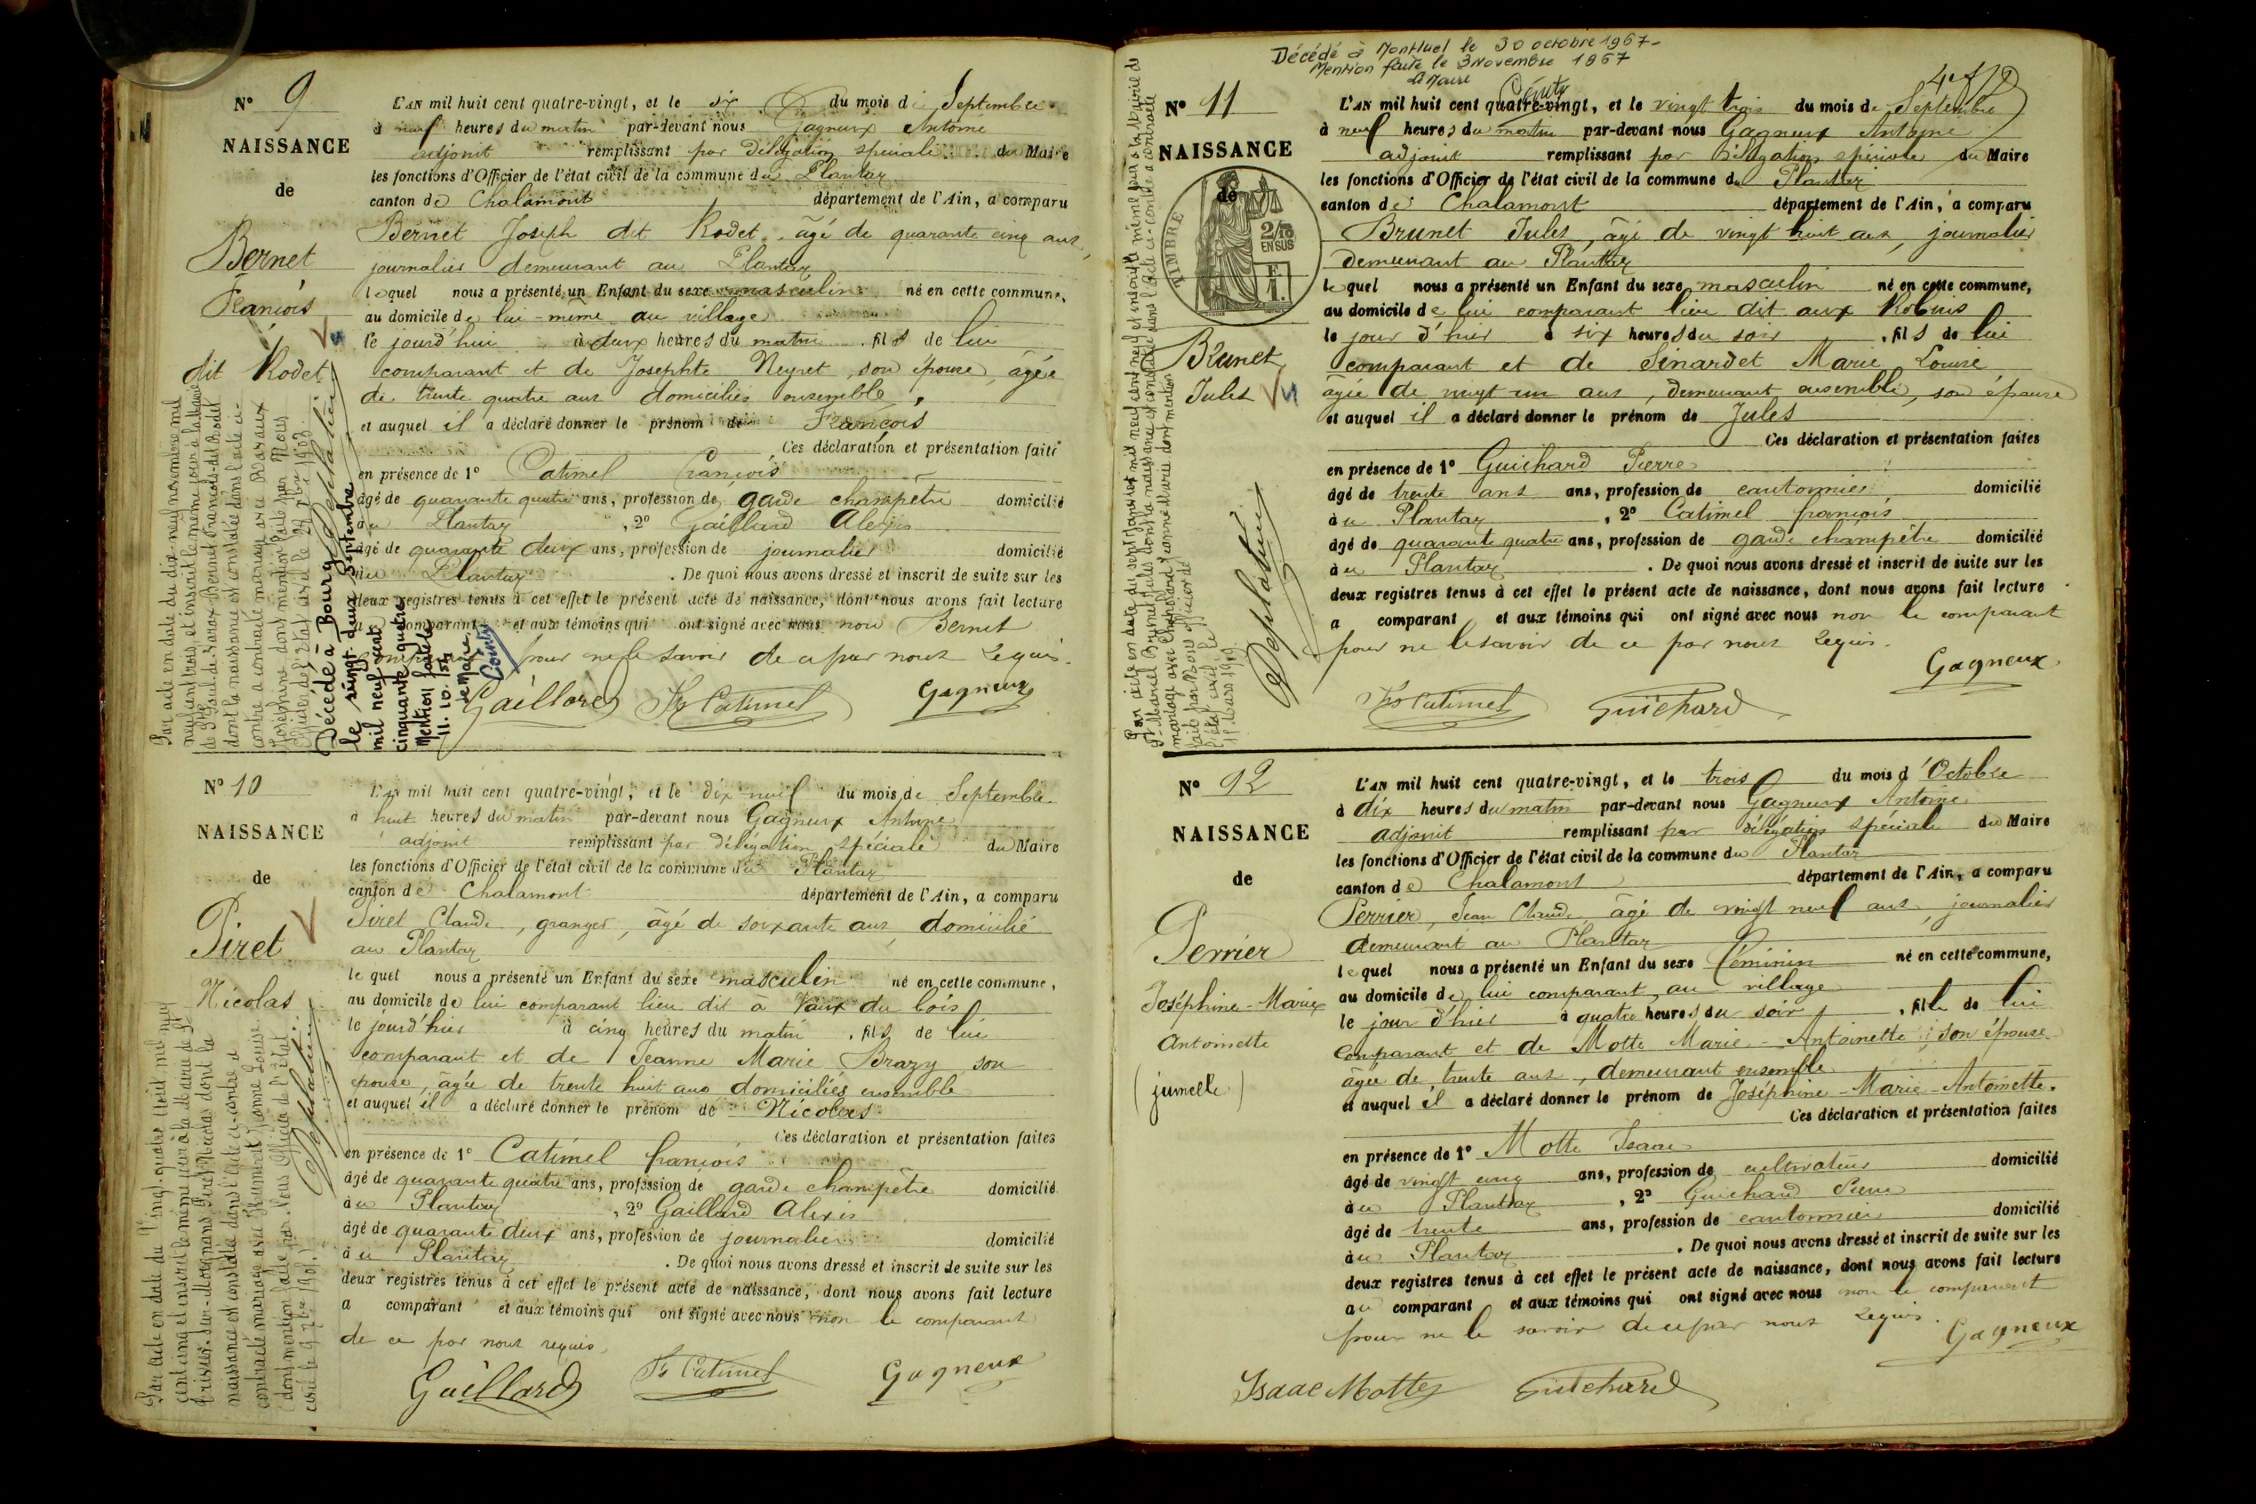 N° 9
NAISSANCE
de
Bernet
François
dit Rodet
L'AN mil huit cent quatre-vingt, et le six du mois de Septembre
à neuf heures du matin par-devant nous Gagneux Antoine
adjoint remplissant par délégation spéciale du Maire
les fonctions d'Officier de l'état civil de la commune du Plantay
canton de Chalamont département de l'Ain, a comparu
Bernet Joseph dit Rodet, âgé de quarante cinq ans,
journalier demeurant au Plantay
lequel nous a présenté un Enfant du sexe masculin né en cette commune,
au domicile de lui-même au village
le jourd'hui à deux heures du matin, fils de lui
comparant et de Josephte Neyret, son épouse, âgée
de trente quatre ans domiciliés ensemble,
et auquel il a déclaré donner le prénom de François
Ces déclaration et présentation faites
en présence de 1° Catimel François
âgé de quarante quatre ans, profession de garde champêtre domicilié
au Plantay, 2° Gaillard Alexis
âgé de quarante deux ans, profession de journalier domicilié
au Plantay. De quoi nous avons dressé et inscrit de suite sur les
deux registres tenus à cet effet le présent acte de naissance, dont nous avons fait lecture
comparant et aux témoins qui ont signé avec nous non Bernet
pour ne le savoir de ce par nous requis.
Gaillard Fs Catimel Gagneux
Par acte en date du dix-neuf novembre mil
neuf cent trois, et enscrit le même jour à la Mairie
de St Paul-de-Varax, Bernet François-dit Rodet
dont la naissance est constatée dans l'acte ci-
contre a contracté mariage avec
Joséphine dont mention faite par Nous
Officier de l'Etat civil le 1903.
Deplatière
Décédé à Bourg
le vingt-deux septembre
mil neuf cent
cinquante quatre
Mention faite le
11.10.54
Le Maire
County
N° 10
NAISSANCE
de
Piret
Nicolas
L'AN mil huit cent quatre-vingt, et le dix neuf du mois de Septembre
à huit heures du matin par-devant nous Gagneux Antoine
adjoint remplissant par délégation spéciale du Maire
les fonctions d'Officier de l'état civil de la commune du Plantay
canton de Chalamont département de l'Ain, a comparu
Piret Claude, granger, âgé de soixante ans, domicilié
au Plantay
lequel nous a présenté un Enfant du sexe masculin né en cette commune,
au domicile de lui comparant lieu dit à Vaux du bois
le jour d'hier à cinq heures du matin, fils de lui
comparant et de Jeanne Marie Brazy son
épouse, âgée de trente huit ans domiciliés ensemble
et auquel il a déclaré donner le prénom de Nicolas
Ces déclaration et présentation faites
en présence de 1° Catimel françois
âgé de quarante quatre ans, profession de garde champêtre domicilié
au Plantay, 2° Gaillard Alexis
âgé de quarante deux ans, profession de journalier domicilié
au Plantay. De quoi nous avons dressé et inscrit de suite sur les
deux registres tenus à cet effet le présent acte de naissance, dont nous avons fait lecture
a comparant et aux témoins qui ont signé avec nous non le comparant
de ce par nous requis.
Gaillard Fs Catimel Gagneux
Par acte en date du Vingt-quatre Août mil neuf
cent cinq et inscrit le même jour à la Mairie de St
Piret Nicolas dont la
naissance est constatée dans l'acte ci-contre a
contracté mariage avec Jeanne Louise
dont mention faite par Nous Officier de l'état
civil le 1905.
Deplatière
Décédé à Montluel le 30 octobre 1967-
Mention faite le 3 Novembre 1967
Le Maire
County
N° 11
NAISSANCE
de
TIMBRE
2/10
EN SUS
F.
1.
Brunet
Jules
L'AN mil huit cent quatre-vingt, et le vingt trois du mois de Septembre
à neuf heures du matin par-devant nous Gagneux Antoine
adjoint remplissant par délégation spéciale du Maire
les fonctions d'Officier de l'état civil de la commune du Plantay
canton de Chalamont département de l'Ain, a comparu
Brunet Jules, âgé de vingt huit ans, journalier
demeurant au Plantay
lequel nous a présenté un Enfant du sexe masculin né en cette commune,
au domicile de lui comparant lieu dit aux Robins
le jour d'hier à six heures du soir, fils de lui
comparant et de Sinardet Marie Louise
âgée de vingt un ans, demeurant ensemble, son épouse
et auquel il a déclaré donner le prénom de Jules
Ces déclaration et présentation faites
en présence de 1° Guichard Pierre
âgé de trente ans ans, profession de cantonnier domicilié
au Plantay, 2° Catimel françois
âgé de quarante quatre ans, profession de garde champêtre domicilié
au Plantay. De quoi nous avons dressé et inscrit de suite sur les
deux registres tenus à cet effet le présent acte de naissance, dont nous avons fait lecture
a comparant et aux témoins qui ont signé avec nous non le comparant
pour ne le savoir de ce par nous requis.
Gagneux
Fs Catimel Guichard
Par acte en date du sept janvier mil neuf cent neuf et inscrit le même jour à la Mairie de
St Marcel Brunet Jules dont la naissance est constatée dans l'acte ci-contre a contracté
mariage avec Jeanne Marie dont mention
faite par Nous officier de
l'état civil le
Deplatière
N° 12
NAISSANCE
de
Perrier
Joséphine-Marie
Antoinette
(jumelle)
L'AN mil huit cent quatre-vingt, et le trois du mois d'Octobre
à dix heures du matin par-devant nous Gagneux Antoine
adjoint remplissant par délégation spéciale du Maire
les fonctions d'Officier de l'état civil de la commune du Plantay
canton de Chalamont département de l'Ain, a comparu
Perrier, Jean Claude, âgé de vingt neuf ans, journalier
demeurant au Plantay
lequel nous a présenté un Enfant du sexe féminin né en cette commune,
au domicile de lui comparant, au village
le jour d'hier à quatre heures du soir, fille de lui
comparant et de Motte Marie-Antoinette, son épouse
âgée de trente ans, demeurant ensemble
et auquel il a déclaré donner le prénom de Joséphine-Marie-Antoinette.
Ces déclaration et présentation faites
en présence de 1° Motte Isaac
âgé de vingt cinq ans, profession de cultivateur domicilié
au Plantay, 2° Guichard Pierre
âgé de trente ans, profession de cantonnier domicilié
au Plantay. De quoi nous avons dressé et inscrit de suite sur les
deux registres tenus à cet effet le présent acte de naissance, dont nous avons fait lecture
au comparant et aux témoins qui ont signé avec nous non le comparant
pour ne le savoir de ce par nous requis.
Gagneux
Isaac Motte Guichard